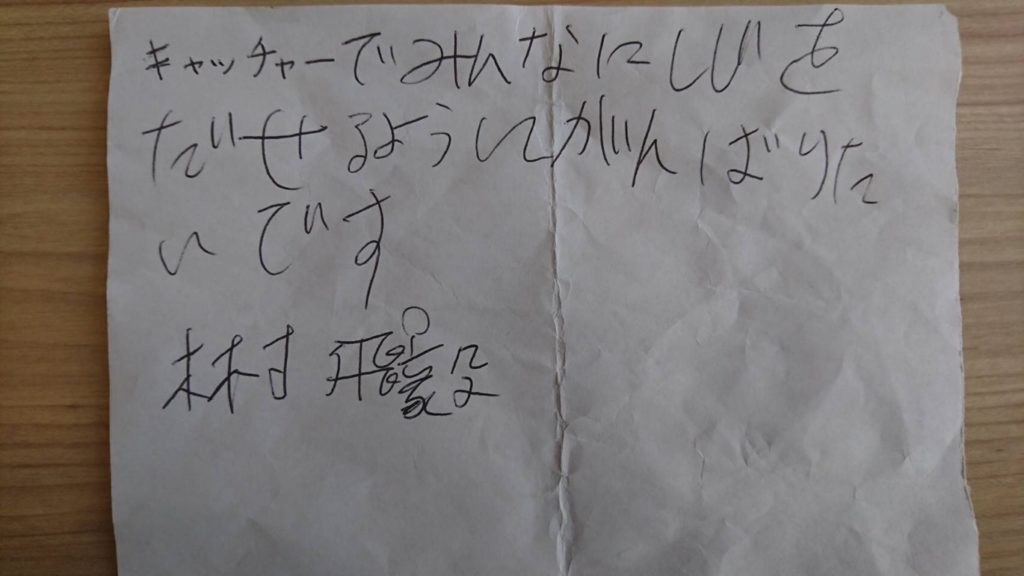 キャッチャーでみんなにしじを
だせるようにがんばりた
いです
木村